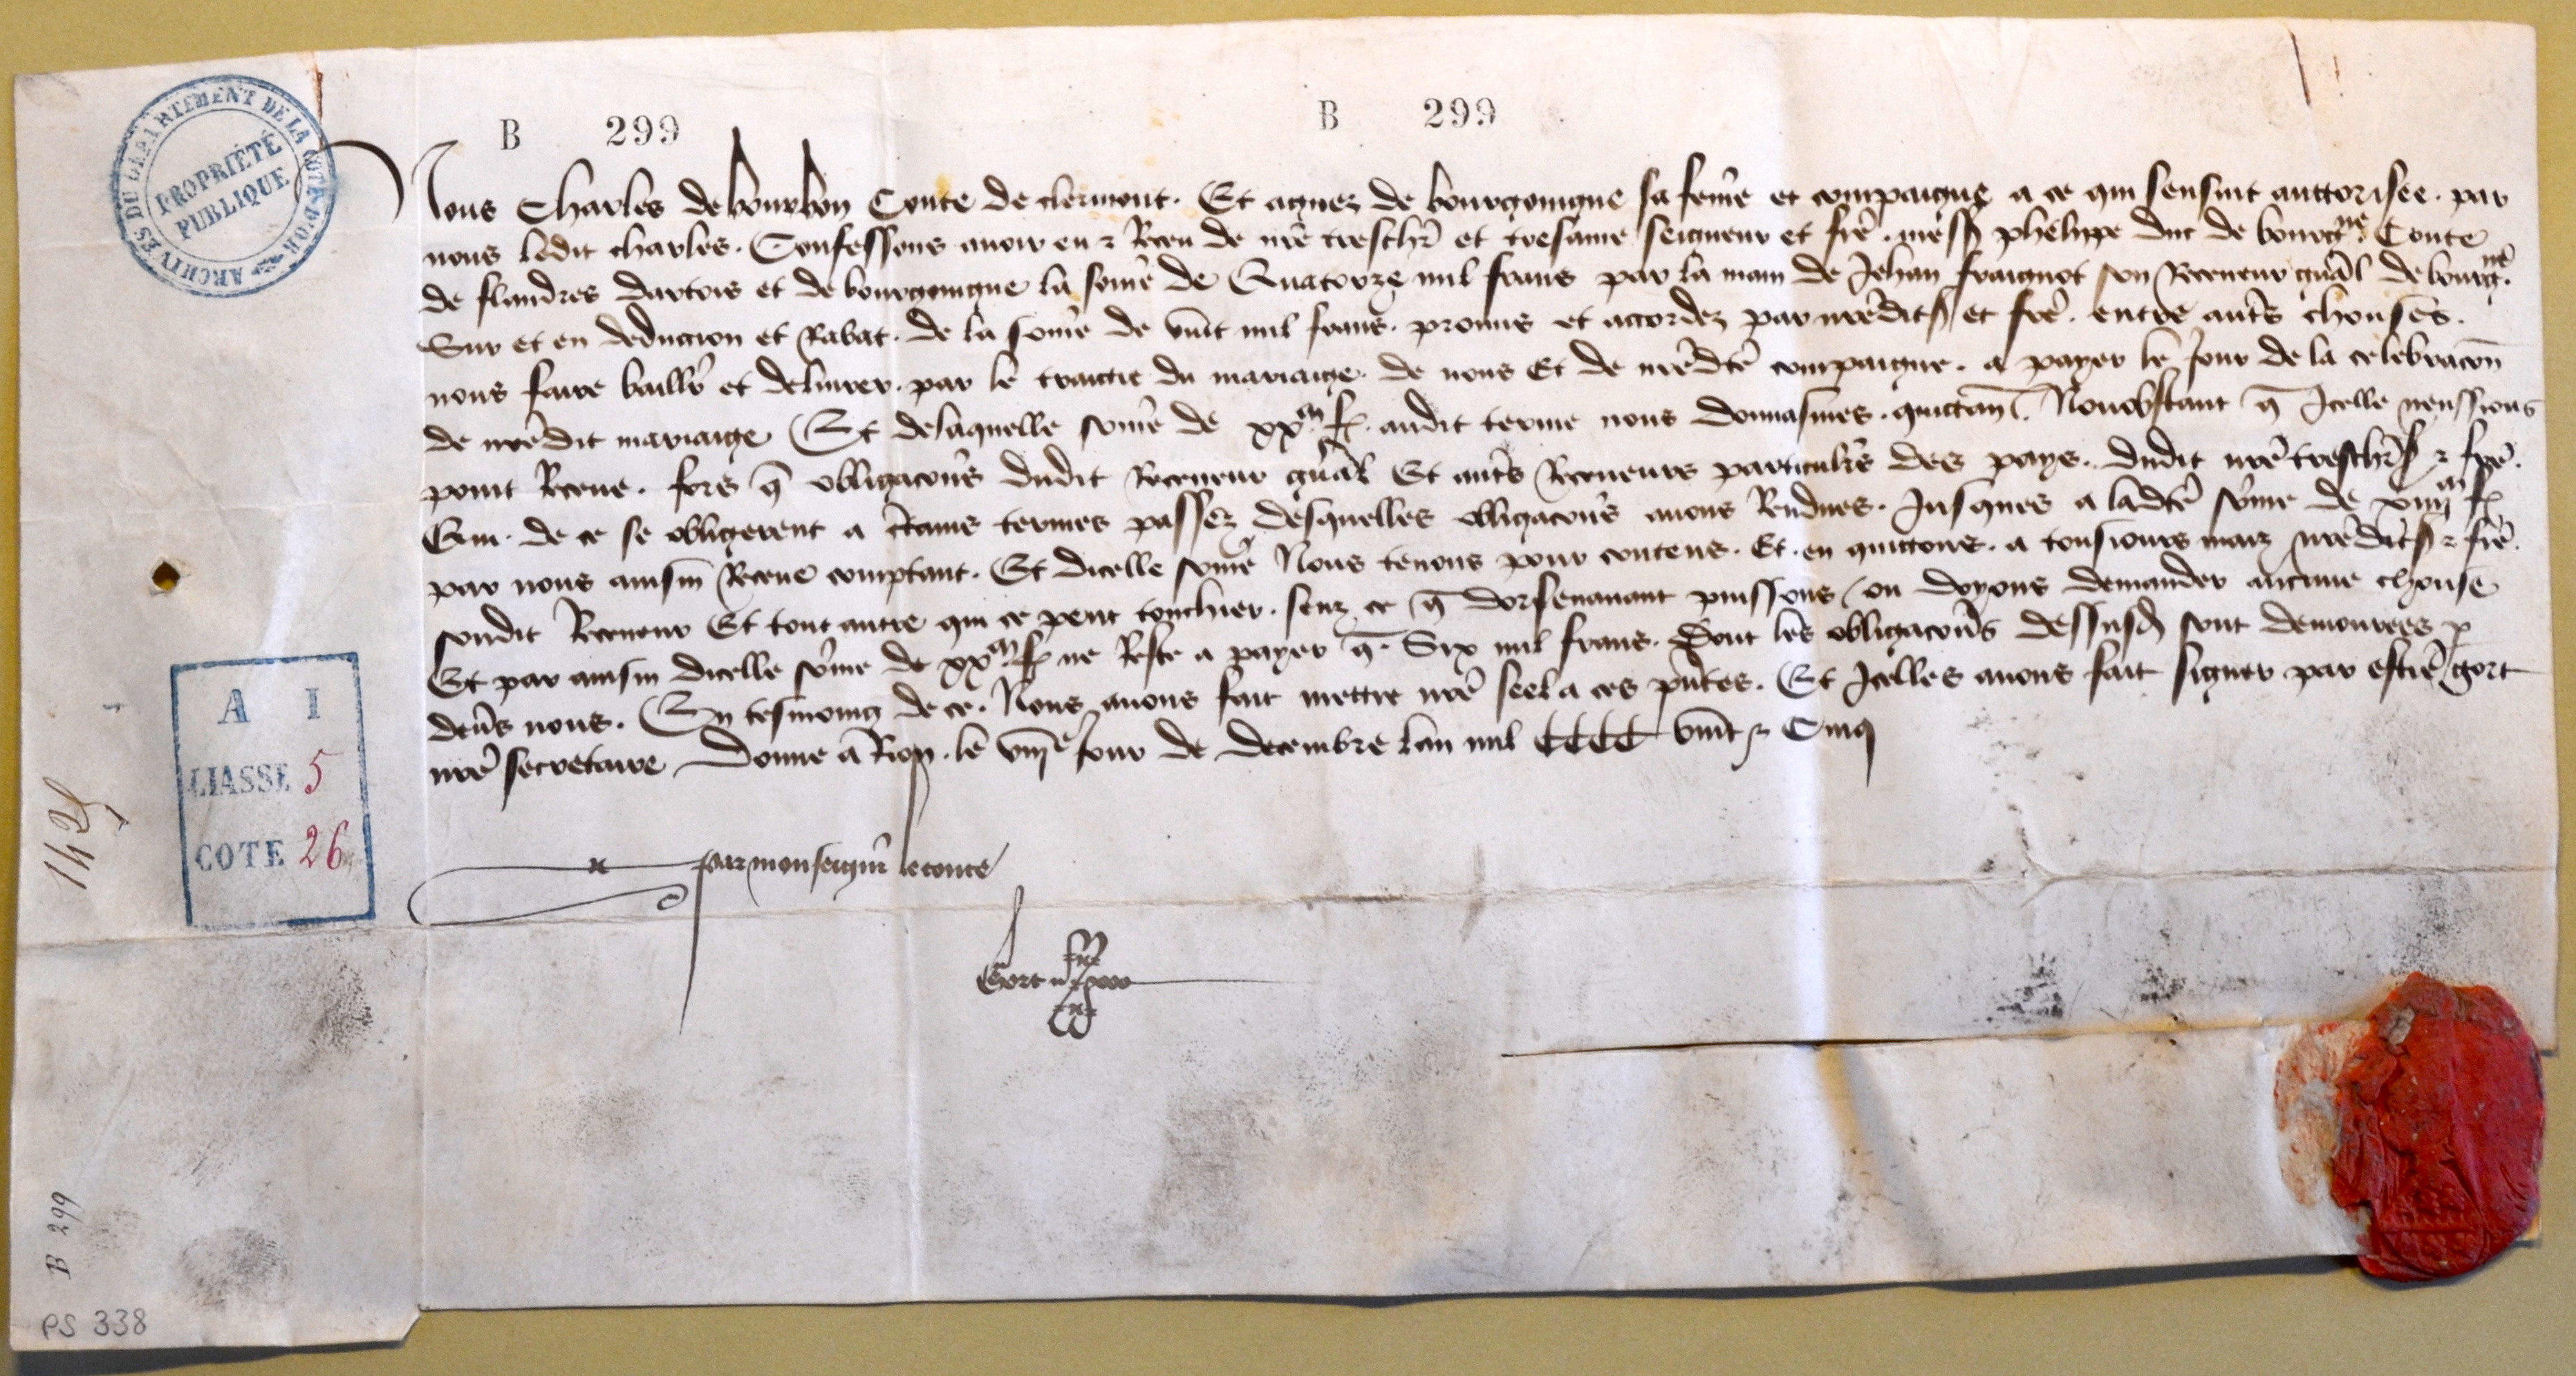 ARCHIVES DU DÉPARTEMENT DE LA CÔTE-D'OR
PROPRIÉTÉ
PUBLIQUE
B 299
B 299
Nous Charles de bourbon Conte de clermont. Et agnez de bourgoingne sa feme et compaigne a ce qui sensuit auttorisee. par
nous ledit charles. Confessons avoir eu et Receu de nre treschr et tresame seigneur et fre. mess phelippe duc de bourgne Conte
de flandres dartois et de bourgoingne la some de Quatorze mil frans par la main de Jehan fraignot son Receveur gnal de bourgne
Sur et en deducion et Rabat. de la some de vint mil frans. promis et accordez par nredit s et fre. entre autes chouses.
nous faire baillr et delivrer. par le traittie du mariaige. de nous Et de nredte compaigne. a payer le jour de la celebracon
de nredit mariaige Et de laquelle some de xxm f. audit terme nous donnasmes. quittan. Nonobstant q Icelle neussions
point Receue. fors q obligacons dudit Receveur gnal Et autes Receveurs particulrs des pays. dudit nre treschr s et fre.
Qui. de ce se obligerent a ctains termes passez desquelles obligacons avons Rendues. Jusques a ladte some de xiiiim f
par nous ainsin Receue comptant. Et dicelle some Nous tenons pour contens. Et en quittons. a tousiours maiz nredit s et fre.
sondit Receveur Et tout autre qui ce peut touchier. senz ce q dorsenavant puissons ou doyons demander aucune chouse
Et par ainsin dicelle some de xxm f ne Reste a payer q. Six mil frans. Dont les obligacons dessusd sont demourees p
devs nous. En tesmoing de ce. Nous avons fait mettre nre seel a ces pntes. Et Icelles avons fait signer par estie gort
nre secretaire Donne a Rion. le viiie jour de decembre lan mil CCCC vint et Cinq
par monseignr le conte
Gort
A I
LIASSE 5
COTE 26
1425
B 299
PS 338